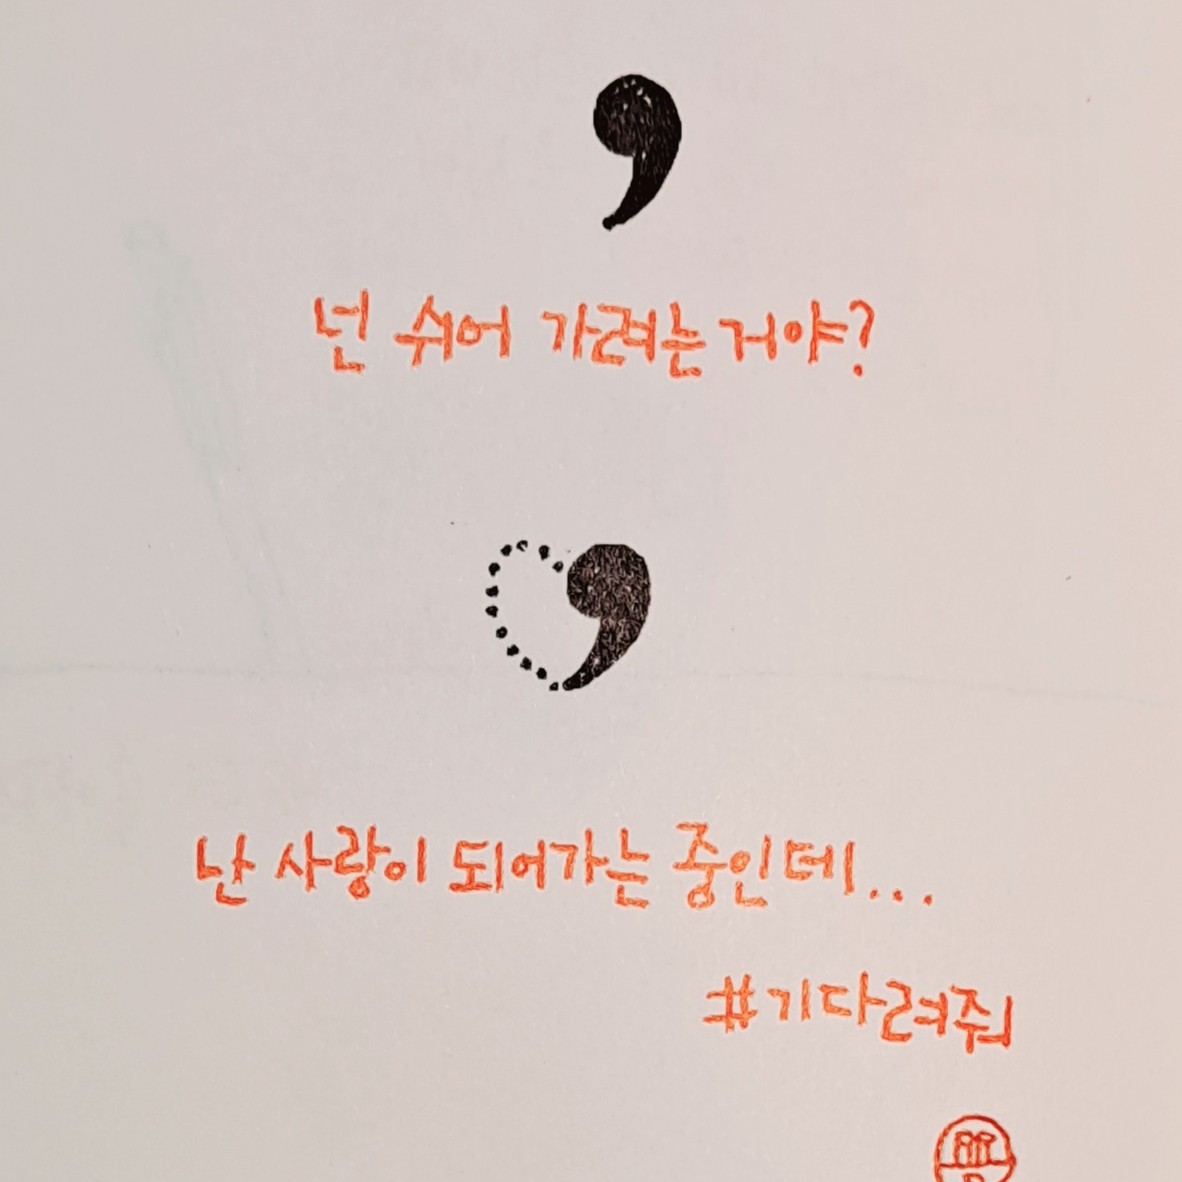 ,
넌 쉬어 가려는거야?
,
난 사랑이 되어가는 중인데...
#기다려줘